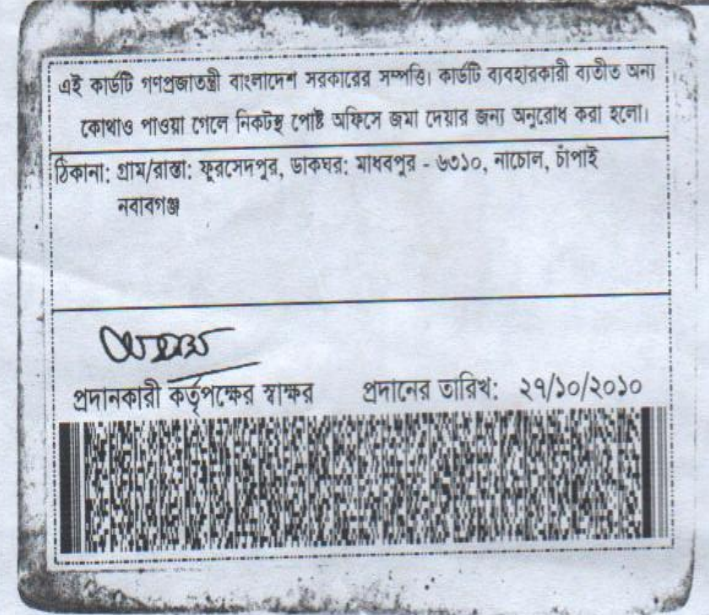 এই কার্ডটি গণপ্রজাতন্ত্রী বাংলাদেশ সরকারের সম্পত্তি। কার্ডটি ব্যবহারকারী ব্যতীত অন্য
কোথাও পাওয়া গেলে নিকটস্থ পোষ্ট অফিসে জমা দেয়ার জন্য অনুরোধ করা হলো।
ঠিকানা: গ্রাম/রাস্তা: ফুরসেদপুর, ডাকঘর: মাধবপুর - ৬৩১০, নাচোল, চাঁপাই
নবাবগঞ্জ
প্রদানকারী কর্তৃপক্ষের স্বাক্ষর প্রদানের তারিখ: ২৭/১০/২০১০